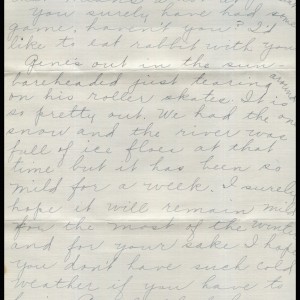 You surely have had some
game, haven't you? I'd
like to eat rabbit with you.
Gene's out in the sun -
bareheaded just tearing around
on his roller skates. It is
so pretty out. We had the one
snow and the river was
full of ice floes at that
time but it has been so
mild for a week. I surely
hope it will remain mild
for the most of the winter
and for your sake I hope
you don't have such cold
weather if you have to